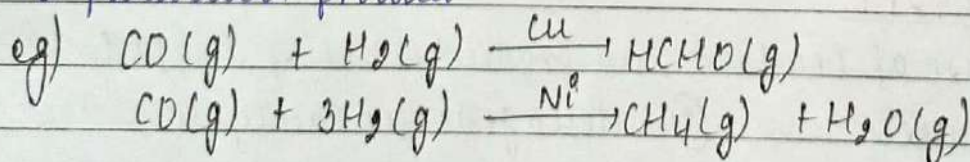 eg) CO(g) + H2(g) —Cu→ HCHO(g)
CO(g) + 3H2(g) —Ni→ CH4(g) + H2O(g)